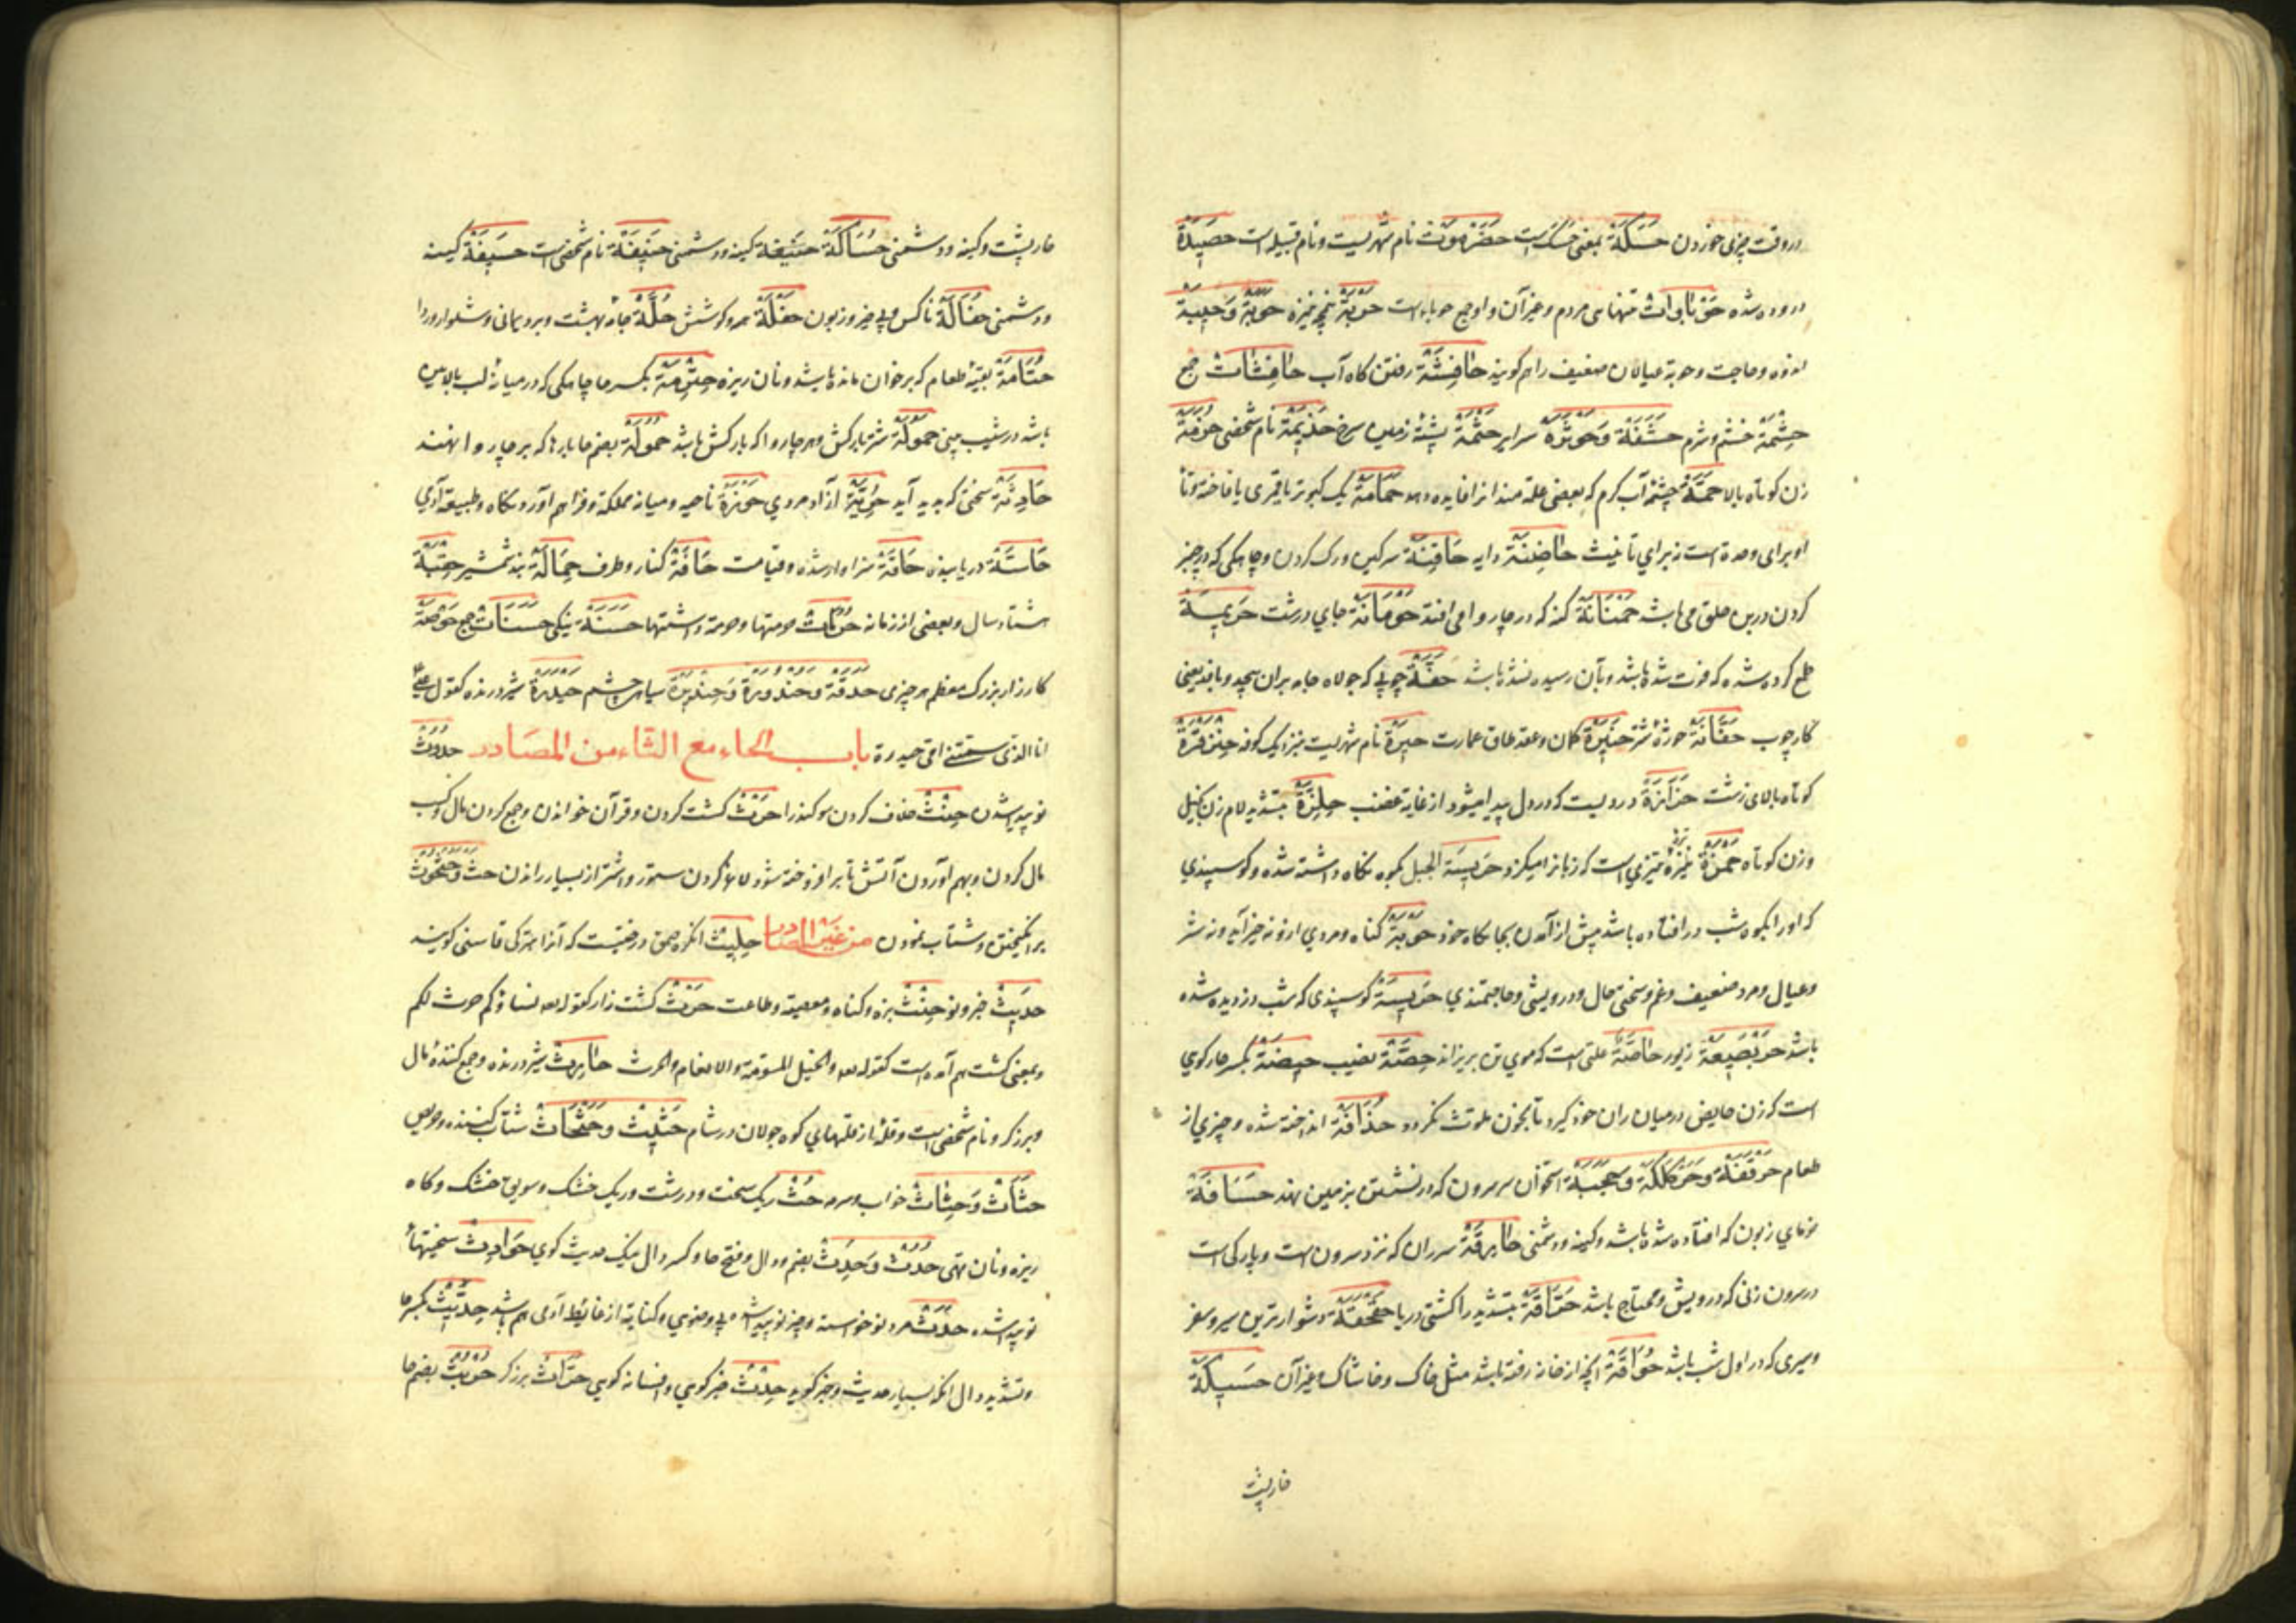 در وقت چیزی خوردن حَسَكَةٌ بمعنی خسک است حَضْرَمَوْت نام شهریست و نام قبیله است حَصِيدَةٌ
دروده شده مردم و غیر آن و او جمع حوباء است حَوْبَةٌ وَحِيبَةٌ
اندوه و حاجت و حوبة عیالان ضعیف را هم کویند حَافِشَةٌ رفتن کاه آب حَافِشَاتٌ جمع
حِشْمَةٌ خشم و شرم حَشَفَةٌ وَحَوْثَرَةٌ سرایر حَثْمَةٌ پشتهٔ زمین سرخ حَذِيمَةٌ نام شخصی
زن کوتاه بالا حَمَّةٌ چشمهٔ آب کرم که بعضی علتمندانرا فایده دهد حَمَامَةٌ یک کبوتر یا قمری یا فاخته و تا
او برای وحدة است نه برای تأنیث حَاضِنَةٌ دایه حَاقِنَةٌ
کردن درین حلق می باشد حَمْنَانَةٌ کنه که در چاروا می افتد حَوْمَانَةٌ جای درشت حَرِيسَةٌ
طمع کرده شده که فوت شده باشد و بآن رسیده نشده باشد حَفَّةٌ چوبی که جولاه جامه بران پیچد و بافد یعنی
کارچوب حَفَّانَةٌ شتر حَنِيرَةٌ کمان و عقد طاق عمارت حِيرَةٌ نام شهریست نیز ایک کونه حِنْزَقْرَةٌ
کوتاه بالای زشت حَزَازَةٌ دردیست که در دل پیدا میشود از غایة غضب حِلِزَةٌ بتشدید لام زن بخیل
و زن کوتاه حَمْزَةٌ تیزی است که زبانرا میکزد حَرِيسَةُ الجبل بکوه نکاه داشته شده و کوسپندی
که او را بکوه شب در افتاده باشد پیش از آمدن بجایکاه خود حَوْبَةٌ کناه و مردی ازو نه خیر آید و نه شر
و عیال و مرد ضعیف و غم و سختی حال و درویشی و حاجتمندی حَرِيسَةٌ کوسپندی که شب دزدیده شده
باشد زیور حَاصَّةٌ علتی است که موی تن بریزاند حِصَّةٌ نصیب حِيضَةٌ بکسر حا رکوی
است که زن حایض در میان ران خود کیرد تا بخون ملوث نکردد حُذَافَةٌ انداخته شده و چیزی از
طعام حَرْقَفَةٌ وَحَرْكَكَةٌ وَحَجَبَةٌ استخوان سر سرون که در نشستن بزمین نهند حَسَافَةٌ
خرمای زبون که افتاده شده باشد و کینه و دشمنی حَارِقَةٌ سر ران که نزد سرون است و پارکی است
در سرون زنی که درویش و محتاج باشد حَرَّاقَةٌ بتشدید را کشتی دریا حَقْحَقَةٌ دشوارترین سیر و سفر
و سیری که در اول شب باشد حُوَاقَةٌ آنچه از خانه رفته باشد مثل خاک و خاشاک و غیر آن حَسِيكَةٌ
خارپشت
خارپشت و کینه و دشمنی حُسَاكَةٌ کینه و دشمنی حَنِيفَةٌ نام شخصی است حَسِيفَةٌ کینه
و دشمنی حُثَالَةٌ ناکس و بی خیر و زبون حَفْلَةٌ مرد کوشش حُلَّةٌ جامهٔ بهشت و برد یمانی و شلوار و ردا
حُتَامَةٌ بقیهٔ طعام که بر خوان مانده باشد و نان ریزه حِثْرِمَةٌ بکسر حا چاهکی که در میانهٔ لب بالایین
باشد در شیب بینی حَمُولَةٌ شتر بارکش و هر چاروا که بارکش باشد حُمُولَةٌ بضم حا بارها که بر چاروا نهند
حَادِثَةٌ سختی که پدید آید حُرِّيَّةٌ آزاد مردی حَوْزَةٌ ناحیه و میانه مملکة و فراهم آورد نکاه و طبیعة آدمی
حَاسَّةٌ دریابنده حَاقَّةٌ سزاوار شده و قیامت حَافَةٌ کنار و طرف حِمَالَةٌ بند شمشیر حِقْبَةٌ
هشتاد سال و بعضی از زمانه حُرُمَاتٌ حرمتها و حرمة داشتها حَسَنَةٌ نیکی حَسَنَاتٌ جمع حَوْمَةٌ
کارزار بزرک و معظم هر چیزی حَدَقَةٌ وَحُنْدُورَةٌ وَحِنْدِيرَةٌ سیاهی چشم حَيْدَرَةٌ شیر درنده کقول علی
انا الذی سمتنی امی حیدرة باب الحاء مع الثاء من المصادر حُدُوثٌ
نو پدید شدن حِنْثٌ خلاف کردن سوکند را حَرْثٌ کشت کردن و قرآن خواندن و جمع کردن مال و کسب
مال کردن و بهم آوردن آتش تا بر افروخته شود و لاغر کردن ستور و اشتر از بسیار راندن حَثٌّ وَحَثْحَثَةٌ
برانکیختن و شتاب نمودن من غیر المصادر حِلْتِيثٌ انکزه صمغ درختیست که آنرا بترکی قاسنی کویند
حَدِيثٌ خبر و نو حِنْثٌ بزه و کناه و معصیة و طاعت حَرْثٌ کشت زار کقوله تعه نساؤکم حرث لکم
و بمعنی کشت هم آمده است کقوله تعه والخیل المسوّمة والانعام والحرث حَارِثٌ شیر درنده و جمع کنندهٔ مال
و برزکر و نام شخصی است و قلهٔ از قلتهای کوه جولان در شام حَثِيثٌ وَحَثْحَاثٌ شتاب کننده و حریص
حَثَاثٌ وَحِثَاثٌ خواب و سرمه حُثٌّ ریک سخت و درشت و ریک خشک و سویق خشک و کاه
ریزه و نان تهی حَدُثٌ وَحَدِثٌ بضم دال و فتح حا و کسر دال نیک حدیث کوی حَوَادِثٌ سختیها
نو پدید شده حَدَثٌ مرد نو خواسته و چیز نو پدید شده و بی وضوی و کنایة از غایط آدمی هم باشد حِدِّيثٌ بکسر حا
و تشدید دال آنکه بسیار حدیث و خبر کوید حِدْثٌ خبر کوی و افسانه کوی حَرَّاثٌ برزکر بضم حا